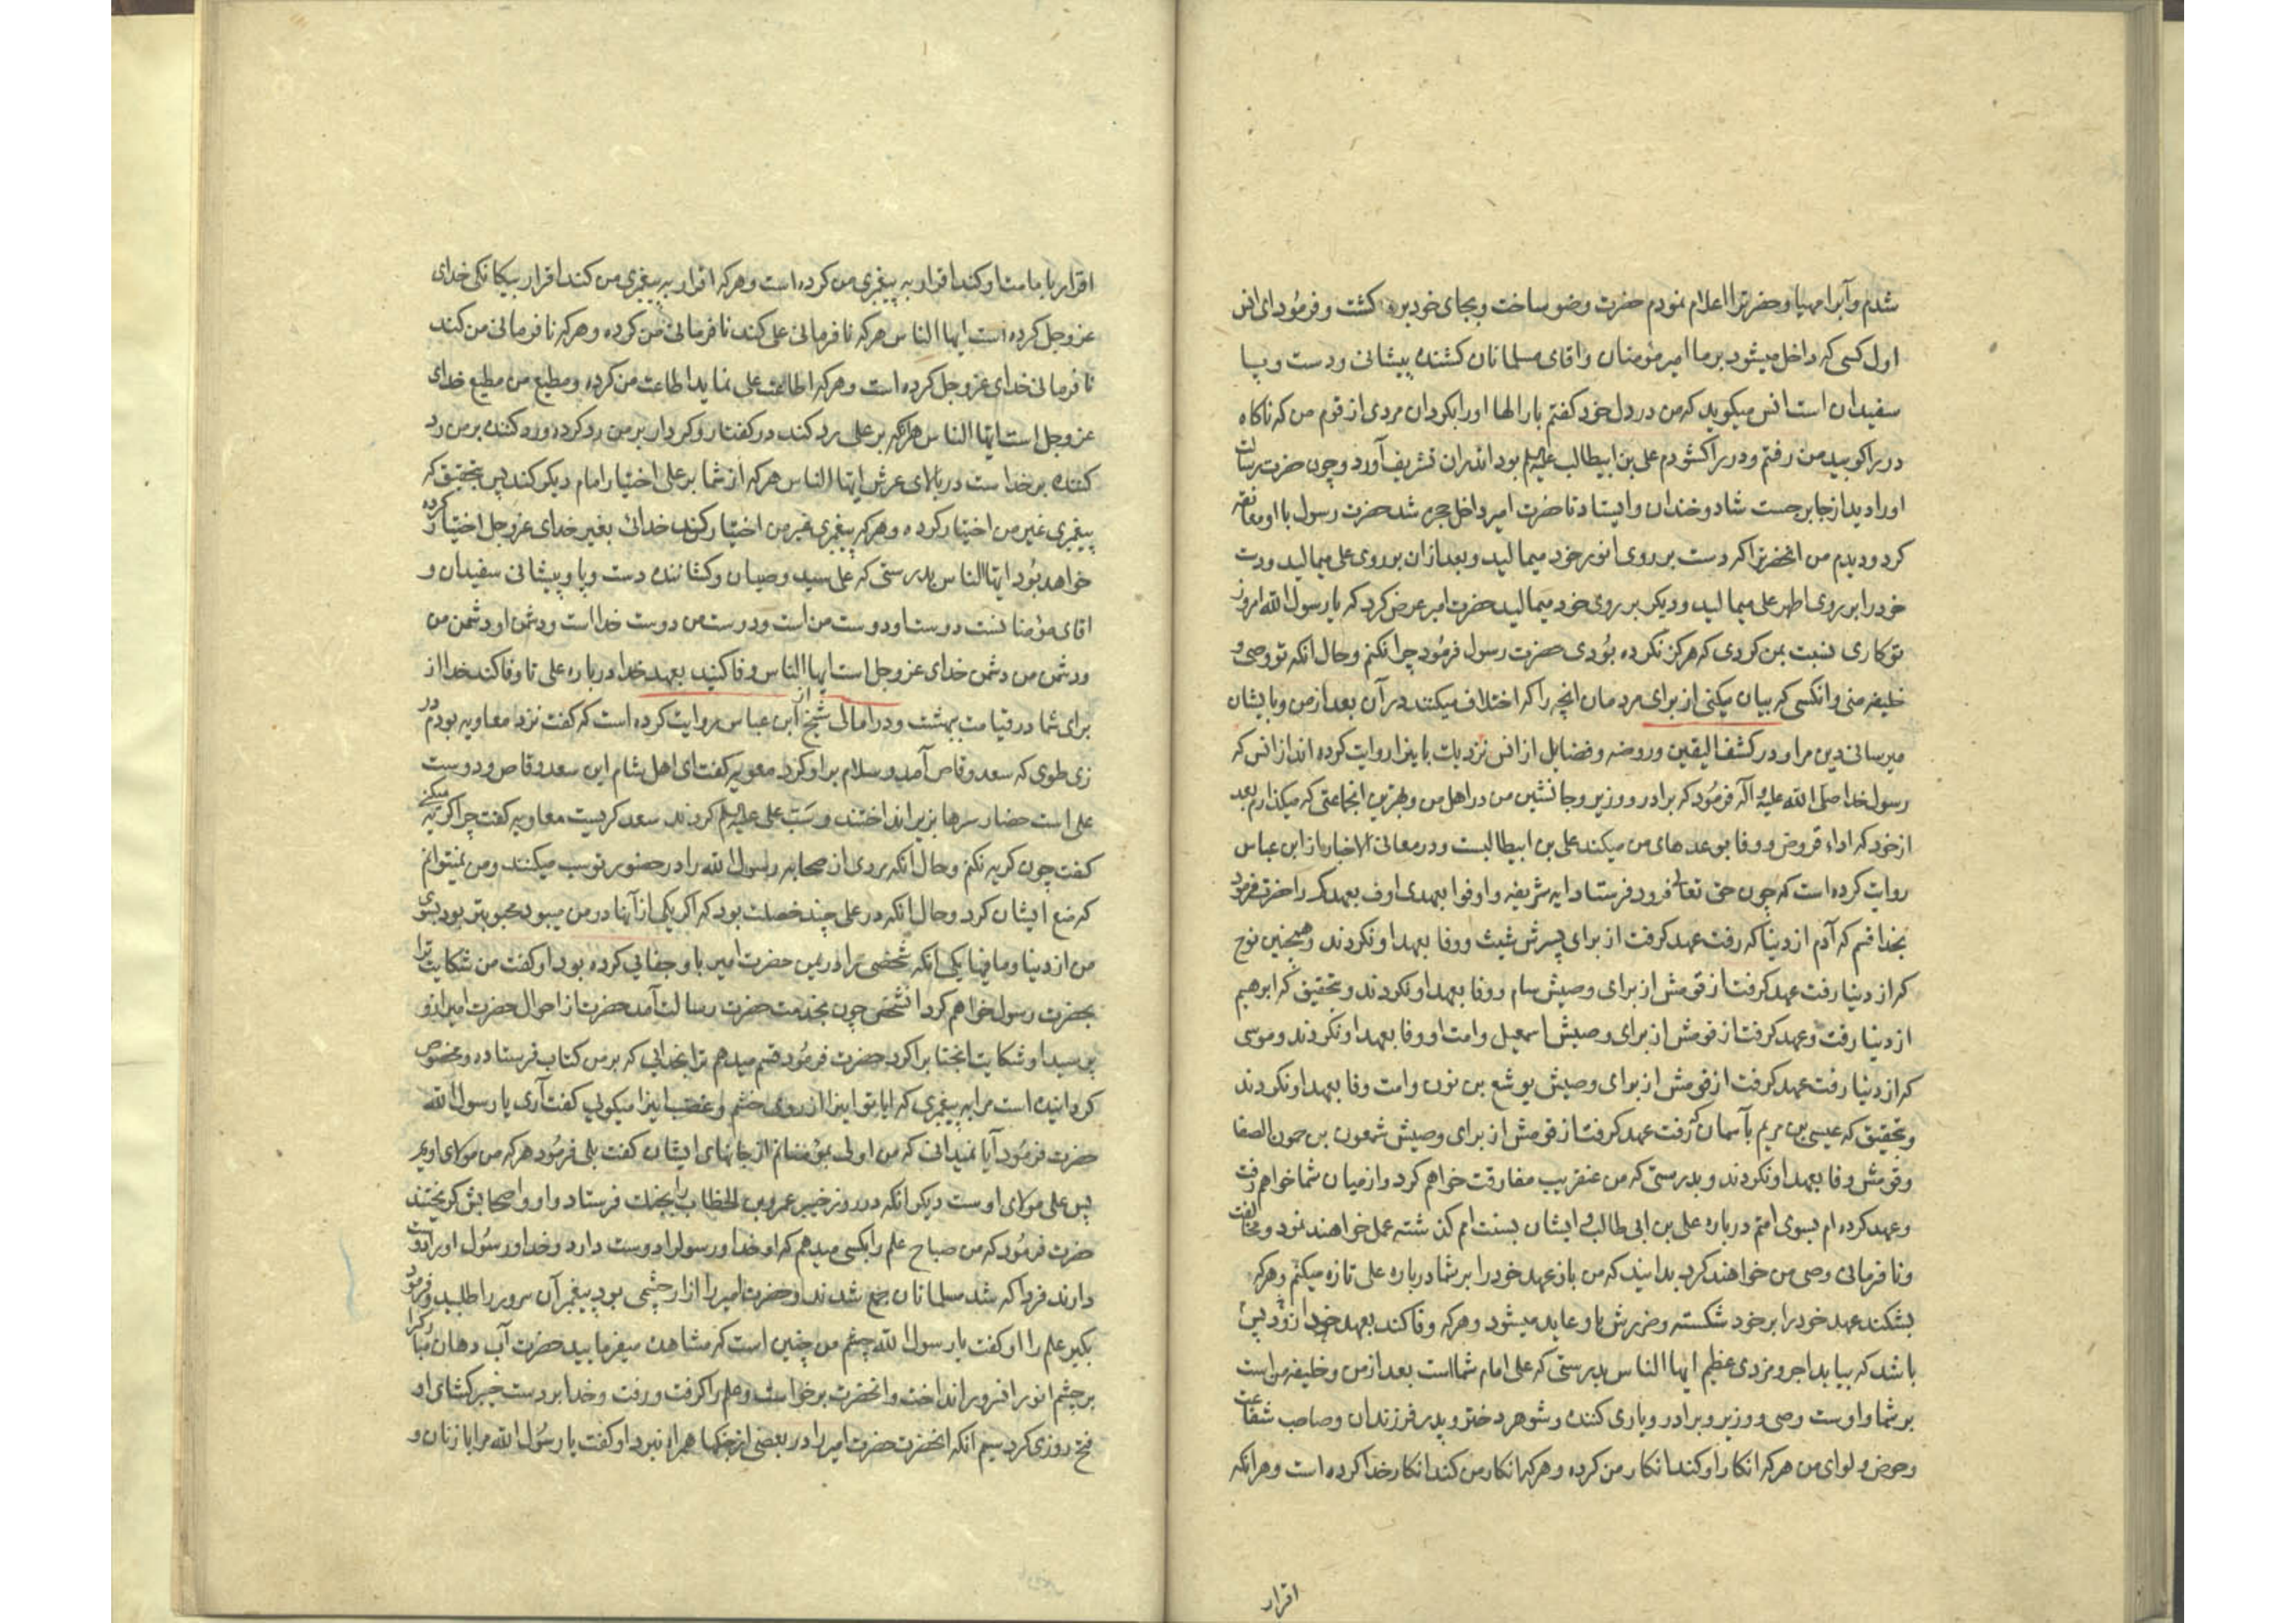 شدم و آبرا مهیا و حضرترا اعلام نمودم حضرت وضو ساخت و بجای خود بر کشت و فرمود ای انس
اول کسی که داخل میشود بر ما امیر مؤمنان و اقای مسلمانان کشنده پیشانی و دست و پا
سفیدان است انس میکوید که من در دل خود کفتم بارالها او را بکردان مردی از قوم من که ناکاه
در برا کوبید من رفتم و در برا کشودم علی بن ابیطالب علیه السلم بود اندران تشریف آورد و چون حضرت رسالت
او را دید از جا برجست شاد و خندان و ایستاد تا حضرت امیر داخل حجره شد حضرت رسول با او معانقه
کرد و دیدم من انحضرترا که دست بر روی انور خود میمالید و بعد از ان بر روی علی میمالید و دست
خود را بر روی اطهر علی میمالید و دیکر بر روی خود میمالید حضرت امیر عرض کرد که یا رسول الله امروز
تو کاری نسبت بمن کردی که هرکز نکرده بودی حضرت رسول فرمود چرا نکنم و حال انکه تو وصی و
خلیفه منی و انکسی که بیان میکنی از برای مردمان انچه را که اختلاف میکنند در آن بعد از من و بایشان
میرسانی دین مرا و در کشف الیقین و روضه و فضایل از انس نزدیک باینرا روایت کرده اند از انس که
رسول خدا صلی الله علیه و آله فرمود که برادر و وزیر و جانشین من در اهل من و بهترین انجماعتی که میکذارم بعد
از خود که اداء قروض و وفا بوعدهای من میکند علی بن ابیطالبست و در معانی الاخبار از ابن عباس
روایت کرده است که چون حق تعالی فرود فرستاد ایه شریفه و اوفوا بعهدی اوف بعهدکم را حضرت فرمود
بخدا قسم که آدم از دنیا که رفت عهد کرفت از برای پسرش شیث و وفا بعهد او نکردند و همچنین نوح
که از دنیا رفت عهد کرفت از قومش از برای وصیش سام و وفا بعهد او نکردند و بتحقیق که ابرهیم
از دنیا رفت و عهد کرفت از قومش از برای وصیش اسمعیل و امت او وفا بعهد او نکردند و موسی
که از دنیا رفت عهد کرفت از قومش از برای وصیش یوشع بن نون و امت وفا بعهد او نکردند
و بتحقیق که عیسی بن مریم بآسمان که رفت عهد کرفت از قومش از برای وصیش شمعون بن حمون الصفا
و قومش وفا بعهد او نکردند و بدرستی که من عنقریب مفارقت خواهم کرد و از میان شما خواهم رفت
و عهد کرده ام بسوی امتم درباره علی بن ابی طالب و ایشان بسنت امم کذشته عمل خواهند نمود و مخالفت
و نافرمانی وصی من خواهند کرد بدانید که من باز عهد خود را بر شما درباره علی تازه میکنم و هرکه
بشکند عهد خود را بر خود شکسته و ضررش باو عاید میشود و هرکه وفا کند بعهد خود زود
باشد که بیابد اجر و مزدی عظیم ایها الناس بدرستی که علی امام شما است بعد از من و خلیفه من است
بر شما و اوست وصی و وزیر و برادر و یاری کننده و شوهر دختر و پدر فرزندان و صاحب شفاعت
و حوض و لوای من هرکه انکار او کند انکار من کرده و هرکه انکار من کند انکار خدا کرده است و هر انکه
اقرار
اقرار بامامت او کند اقرار به پیغمبری من کرده است و هرکه اقرار به پیغمبری من کند اقرار بیکانکی خدای
عز و جل کرده است ایها الناس هرکه نافرمانی علی کند نافرمانی من کرده و هرکه نافرمانی من کند
نافرمانی خدای عز و جل کرده است و هرکه اطاعت علی نماید اطاعت من کرده و مطیع من مطیع خدای
عز و جل است ایها الناس هرکه بر علی رد کند در کفتار و کردار بر من رد کرده و رد کننده بر من رد
کننده بر خدا است در بالای عرش ایها الناس هرکه از شما بر علی اختیار امام دیکر کند پس بتحقیق که
پیغمبری غیر من اختیار کرده و هرکه پیغمبری غیر من اختیار کند خدائی بغیر خدای عز و جل اختیار کرده
خواهد بود ایها الناس بدرستی که علی سید وصیان و کشاننده دست و پا و پیشانی سفیدان و
اقای مؤمنانست دوست او دوست من است و دوست من دوست خدا است و دشمن او دشمن من
و دشمن من دشمن خدای عز و جل است ایها الناس وفا کنید بعهد خدا درباره علی تا وفا کند خدا از
برای شما در قیامت ببهشت و در امالی شیخ از ابن عباس روایت کرده است که کفت نزد معاویه بودم در
زی طوی که سعد وقاص آمد و سلام بر او کرد معویه کفت ای اهل شام این سعد وقاص و دوست
علی است حضار سرها بزیر انداختند و سب علی علیه السلم کردند سعد کریست معاویه کفت چرا کریه میکنی
کفت چون کریه نکنم و حال انکه مردی از صحابه رسول الله را در حضور تو سب میکنند و من نمیتوانم
که منع ایشان کرد و حال انکه در علی چند خصلت بود که اکر یکی از آنها در من میبود محبوبتر بود بسوی
من از دنیا و مافیها یکی انکه شخصی را در یمن حضرت امیر باو جفایی کرده بود او کفت من شکایت ترا
بحضرت رسول خواهم کرد انشخص چون بخدمت حضرت رسالت آمد حضرت از احوال حضرت امیر از او
پرسید او شکایت انجنابرا کرد حضرت فرمود قسم میدهم ترا بخدایی که بر من کتاب فرستاده و مخصوص
کردانیده است مرا به پیغمبری که ایا تو اینرا از روی خشم و غضب اینرا میکویی کفت آری یا رسول الله
حضرت فرمود آیا نمیدانی که من اولی بمؤمنانم از جانهای ایشان کفت بلی فرمود هرکه من مولای اویم
پس علی مولای اوست دیکر انکه در روز خیبر عمر بن الخطاب را بجنک فرستاد و او و اصحابش کریختند
حضرت فرمود که من صباح علم را بکسی میدهم که او خدا و رسولرا دوست دارد و خدا و رسول او را دوست
دارند فردا که شد مسلمانان جمع شدند و حضرت امیر را ازار چشمی بود پیغمبر آن سرور را طلبید و فرمود
بکیر علم را او کفت یا رسول الله چشم من چنین است که مشاهده میفرمایید حضرت آب دهان مبارکرا
بر چشم انور انسرور انداخت و انحضرت برخواست و علم را کرفت و رفت و خدا بر دست خیبر کشای او
فتح روزی کرد سیم انکه انحضرت حضرت امیر را در بعضی از جنکها همراه نبرد او کفت یا رسول الله مرا با زنان و